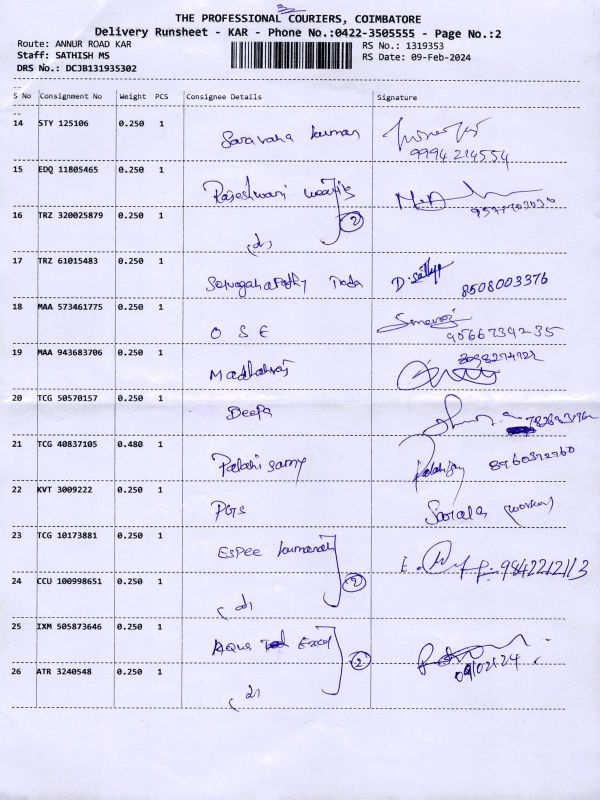 THE PROFESSIONAL COURIERS, COIMBATORE
Delivery Runsheet - KAR - Phone No.:0422-3505555 - Page No.:2
Route: ANNUR ROAD KAR RS No.: 1319353
Staff: SATHISH MS RS Date: 09-Feb-2024
DRS No.: DCJB131935302
S No Consignment No Weight PCS Consignee Details Signature
14 STY 125106 0.250 1
Saravana kumar
9994214554
15 EDQ 11805465 0.250 1
Rajeshwari
16 TRZ 320025879 0.250 1
2
17 TRZ 61015483 0.250 1
D. Sathya 8508003376
18 MAA 573461775 0.250 1
O S E 9566739235
19 MAA 943683706 0.250 1
20 TCG 50570157 0.250 1
Deepa
21 TCG 40837105 0.480 1
Palani samy 8960372760
22 KVT 3009222 0.250 1
PGS Sarala
23 TCG 10173881 0.250 1
Espee
24 CCU 100998651 0.250 1
2
25 IXM 505873646 0.250 1
Aqua Excel
2
09/02/24
26 ATR 3240548 0.250 1